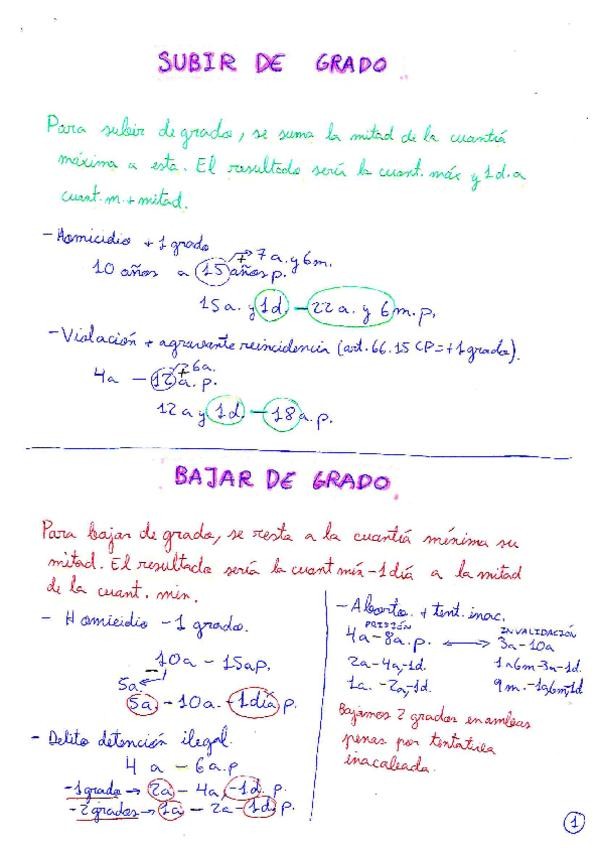 SUBIR DE GRADO
Para subir de grado, se suma la mitad de la cuantía
máxima a esta. El resultado sería la cuant. máx y 1d. a
cuant. m. + mitad.
- Homicidio + 1 grado
+ 7a. y 6m.
10 años a 15 años p.
15a. y 1d. - 22a. y 6m. p.
- Violación + agravante reincidencia (art. 66.15 CP = +1 grado).
+ 6a.
4a - 12a. p.
12a y 1d. - 18a. p.
BAJAR DE GRADO
Para bajar de grado, se resta a la cuantía mínima su
mitad. El resultado sería la cuant mín - 1 día a la mitad
de la cuant. min.
- Homicidio - 1 grado.
10a - 15a p.
5a.
5a. - 10a. - 1 día p.
- Delito detención ilegal.
4a - 6a. p
- 1 grado → 2a - 4a, -1d. p.
- 2 grados → 1a - 2a - 1d. p.
- Aborto. + tent. inac.
PRISIÓN INVALIDACIÓN
4a - 8a. p. ↔ 3a - 10a
2a - 4a, -1d. 1a6m - 3a - 1d.
1a. - 2a, -1d. 9m. - 1a6m, 1d
Bajamos 2 grados en ambas
penas por tentativa
inacabada.
1